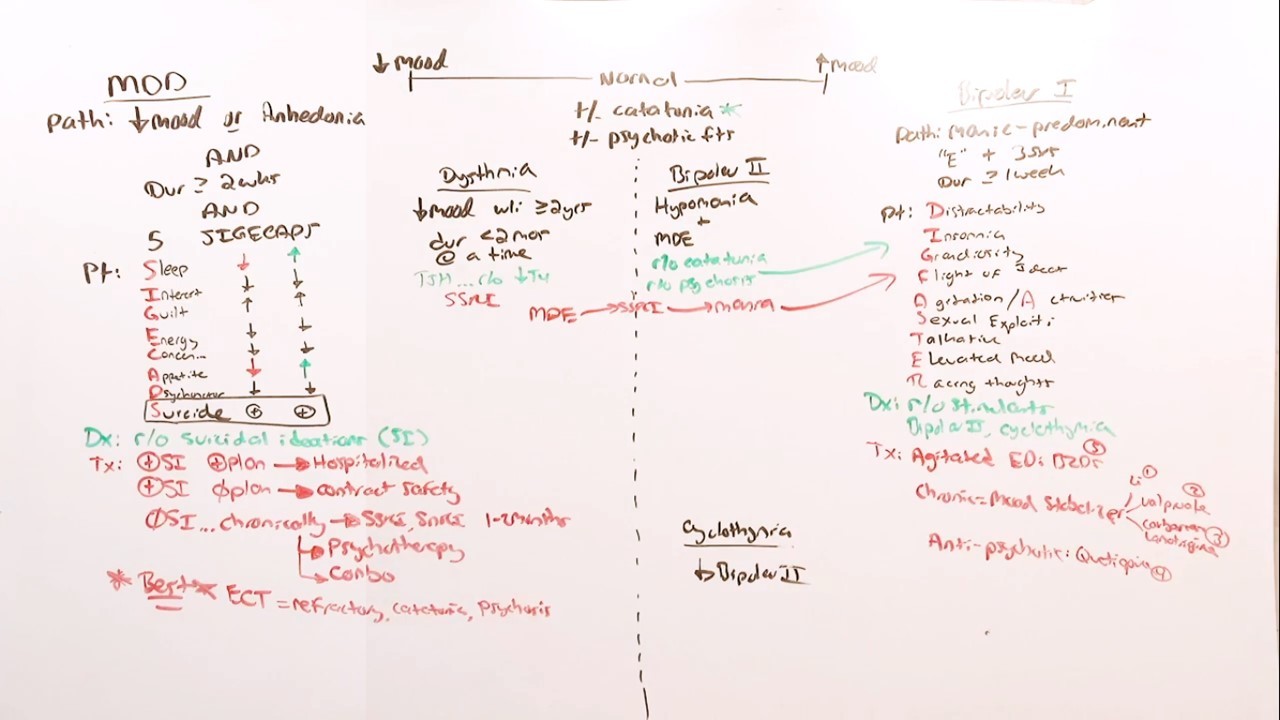 ↓ mood
Normal
↑ mood
+/- catatonia *
+/- psychotic fts
MDD
Path: ↓ mood or Anhedonia
AND
Dur ≥ 2wks
AND
5 SIGECAPS
Pt: Sleep ↓ ↑
Interest ↓ ↑
Guilt ↑ ↑
Energy ↓ ↓
Concen... ↓ ↓
Appetite ↓ ↑
Psychomotor ↓ ↓
Suicide ⊕ ⊕
Dx: r/o suicidal ideations (SI)
Tx: ⊕SI ⊕plan → Hospitalized
⊕SI ∅plan → contract safety
∅SI ... chronically → SSRI, SNRI 1-2 months
→ Psychotherapy
→ Combo
* Best * ECT = refractory, catatonia, psychosis
Dysthmia
↓ mood w/i ≥2yrs
dur <2mon
@ a time
TSH ... r/o ↓T4
SSRI
MDE → SSRI → mania
Bipolar II
Hypomania
+
MDE
r/o catatonia
r/o psychosis
Cyclothymia
↓ Bipolar II
Bipolar I
Path: Manic-predominant
"E" + 3 sxs
Dur ≥ 1 week
Pt: Distractability
Insomnia
Grandiosity
Flight of Ideas
Agitation/Activities
Sexual Exploits
Talkative
Elevated Mood
Racing thoughts
Dx: r/o stimulants
Bipolar II, cyclothymia
Tx: Agitated ED: BZDs ⑤
Chronic = Mood Stabelizer
Li ①
valproate ②
carbamaz ③
Lamotrigine
Anti-psychotic: Quetiapine ④